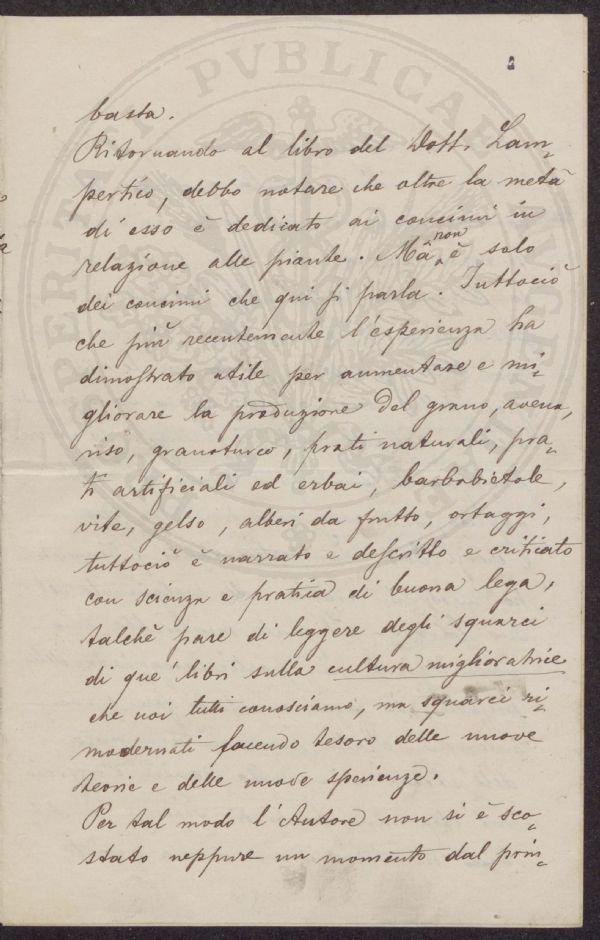 2
basta.
Ritornando al libro del Dott. Lam-
pertico, debbo notare che oltre la metà
di esso è dedicato ai concimi in
relazione alle piante. Mà non è solo
dei concimi che qui si parla. Tuttociò
che più recentemente l'esperienza ha
dimostrato utile per aumentare e mi-
gliorare la produzione del grano, avena,
riso, granoturco, prati naturali, pra-
ti artificiali ed erbai, barbabietole,
vite, gelso, alberi da frutto, ortaggi,
tuttociò è narrato e descritto e criticato
con scienza e pratica di buona lega,
talchè pare di leggere degli squarci
di que' libri sulla cultura miglioratrice
che noi tutti conosciamo, ma squarci ri-
modernati facendo tesoro delle nuove
teorie e delle nuove sperienze.
Per tal modo l'Autore non si è sco-
stato neppure un momento dal prin-
PVBLICAE